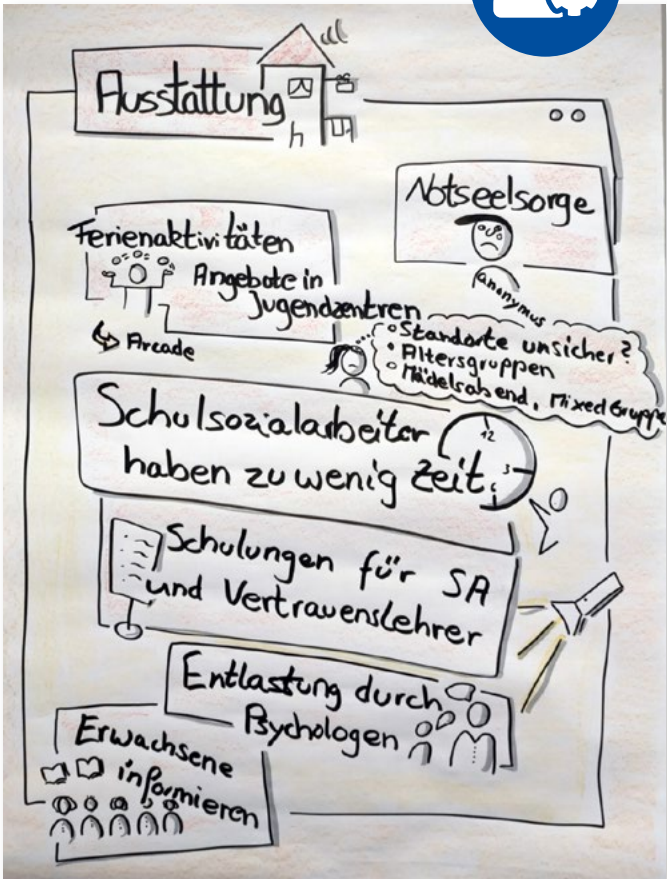 Ausstattung
Notseelsorge
anonymus
Ferienaktivitäten
Angebote in
Jugendzentren
Arcade
• Standorte unsicher?
• Altersgruppen
• Mädelsabend, Mixed Gruppe
Schulsozialarbeiter
haben zu wenig Zeit.
12
3
6
Schulungen für SA
und Vertrauenslehrer
Entlastung durch
Psychologen
Erwachsene
informieren